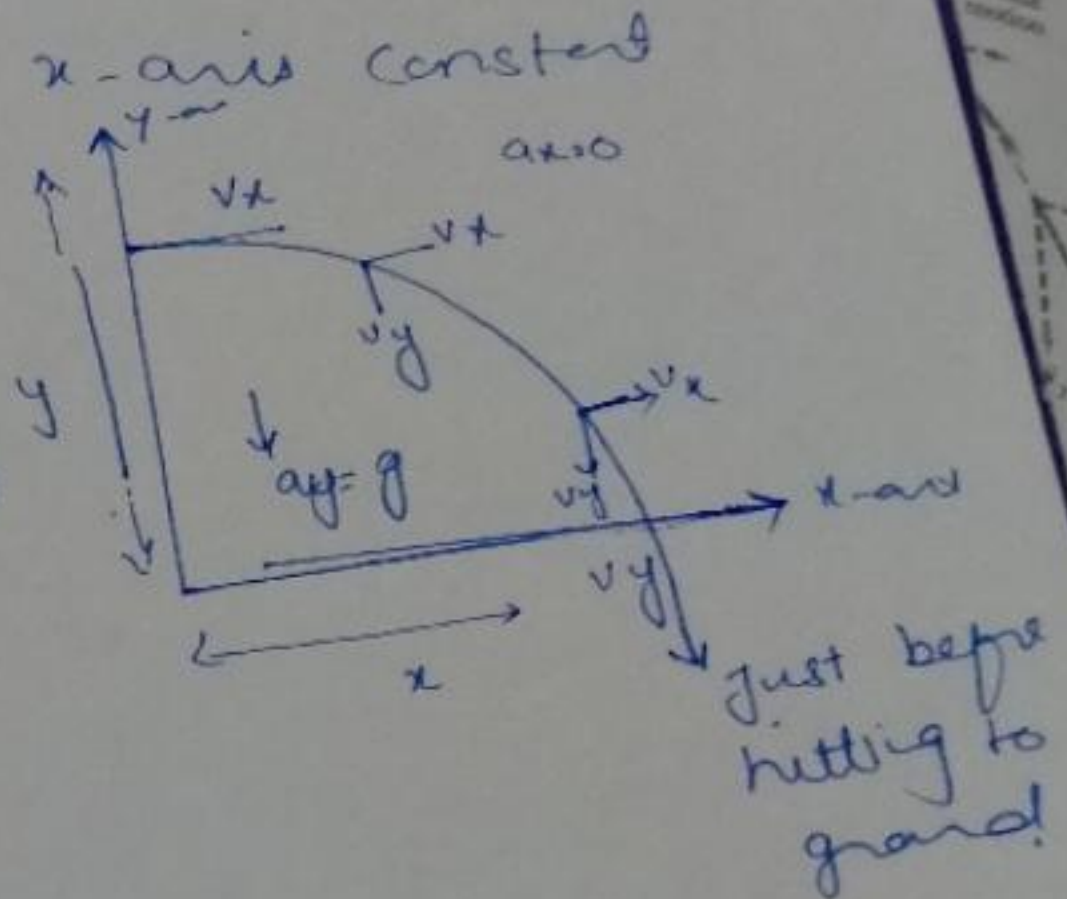 x-axis constant
y-
ax=0
vx
vx
vy
y
ay=g
vx
vy
x-axis
vy
x
just before
hitting to
ground